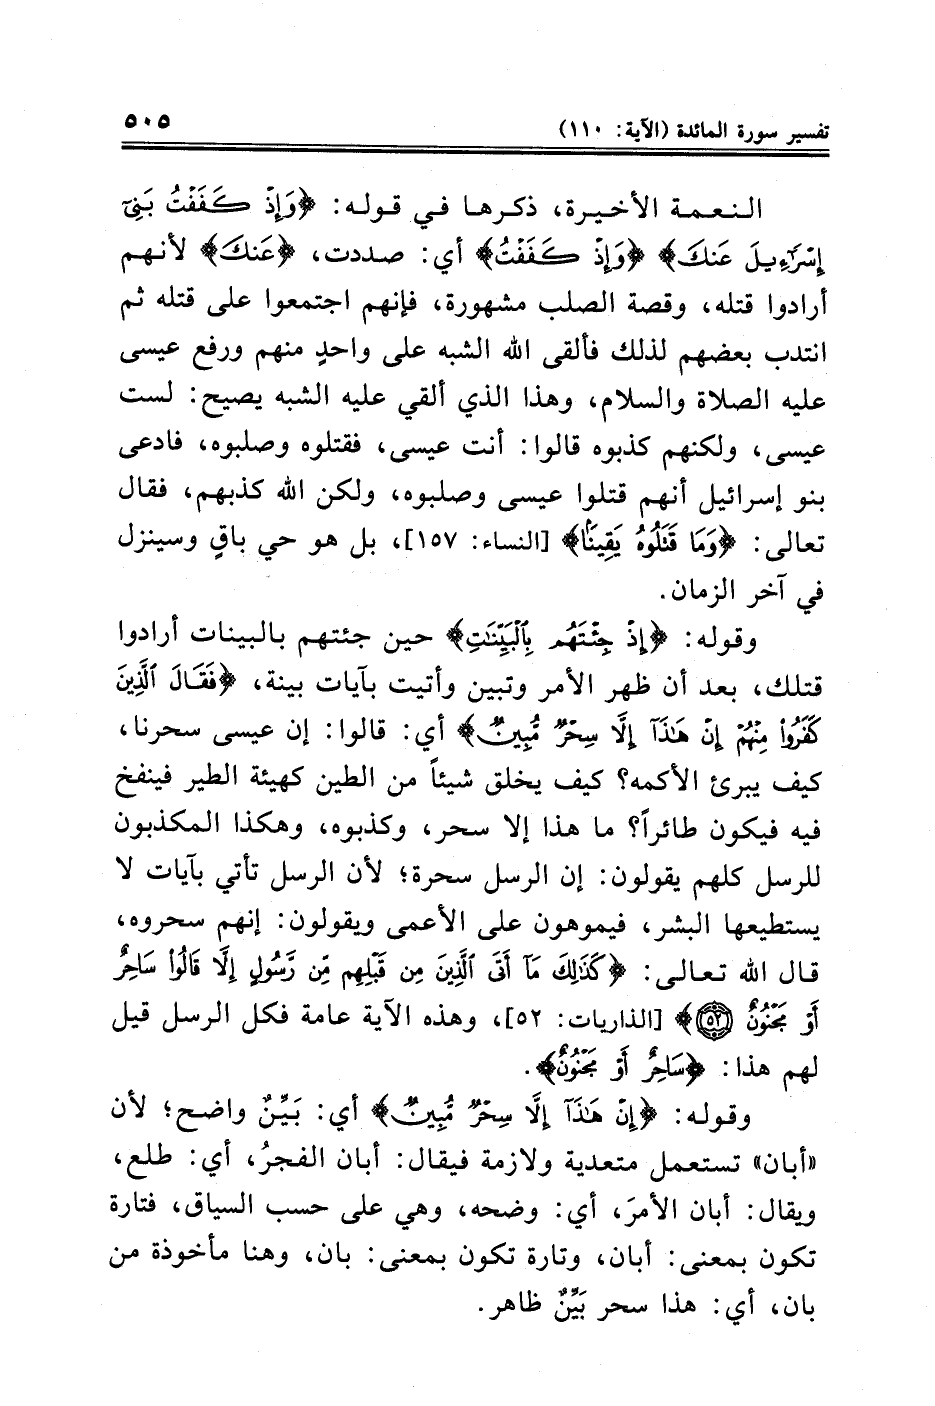 تفسير سورة المائدة (الآية: ١١٠)
٥٠٥
النعمة الأخيرة، ذكرها في قوله: ﴿وَإِذْ كَفَفْتُ بَنِىٓ
إِسْرَٰٓءِيلَ عَنكَ﴾ ﴿وَإِذْ كَفَفْتُ﴾ أي: صددت، ﴿عَنكَ﴾ لأنهم
أرادوا قتله، وقصة الصلب مشهورة، فإنهم اجتمعوا على قتله ثم
انتدب بعضهم لذلك فألقى الله الشبه على واحدٍ منهم ورفع عيسى
عليه الصلاة والسلام، وهذا الذي ألقي عليه الشبه يصيح: لست
عيسى، ولكنهم كذبوه قالوا: أنت عيسى، فقتلوه وصلبوه، فادعى
بنو إسرائيل أنهم قتلوا عيسى وصلبوه، ولكن الله كذبهم، فقال
تعالى: ﴿وَمَا قَتَلُوهُ يَقِينًۢا﴾ [النساء: ١٥٧]، بل هو حي باقٍ وسينزل
في آخر الزمان.
وقوله: ﴿إِذْ جِئْتَهُم بِٱلْبَيِّنَٰتِ﴾ حين جئتهم بالبينات أرادوا
قتلك، بعد أن ظهر الأمر وتبين وأتيت بآيات بينة، ﴿فَقَالَ ٱلَّذِينَ
كَفَرُوا۟ مِنْهُمْ إِنْ هَٰذَآ إِلَّا سِحْرٌ مُّبِينٌ﴾ أي: قالوا: إن عيسى سحرنا،
كيف يبرئ الأكمه؟ كيف يخلق شيئاً من الطين كهيئة الطير فينفخ
فيه فيكون طائراً؟ ما هذا إلا سحر، وكذبوه، وهكذا المكذبون
للرسل كلهم يقولون: إن الرسل سحرة؛ لأن الرسل تأتي بآيات لا
يستطيعها البشر، فيموهون على الأعمى ويقولون: إنهم سحروه،
قال الله تعالى: ﴿كَذَٰلِكَ مَآ أَتَى ٱلَّذِينَ مِن قَبْلِهِم مِّن رَّسُولٍ إِلَّا قَالُوا۟ سَاحِرٌ
أَوْ مَجْنُونٌ ۝٥٢﴾ [الذاريات: ٥٢]، وهذه الآية عامة فكل الرسل قيل
لهم هذا: ﴿سَاحِرٌ أَوْ مَجْنُونٌ﴾.
وقوله: ﴿إِنْ هَٰذَآ إِلَّا سِحْرٌ مُّبِينٌ﴾ أي: بَيِّنٌ واضح؛ لأن
«أبان» تستعمل متعدية ولازمة فيقال: أبان الفجرُ، أي: طلع،
ويقال: أبان الأمرَ، أي: وضحه، وهي على حسب السياق، فتارة
تكون بمعنى: أبان، وتارة تكون بمعنى: بان، وهنا مأخوذة من
بان، أي: هذا سحر بَيِّنٌ ظاهر.